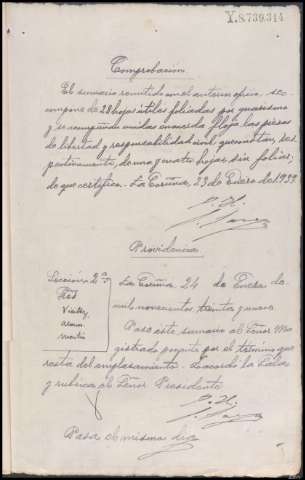 Y.8.739.314
Comprobación
El sumario remitido con el anterior oficio, se
compone de 28 hojas útiles foliadas por guarismo
y se acompañan unidas en cuerda floja las piezas
de libertad y responsabilidad civil que constan, res-
pectivamente, de una y cuatro hojas sin foliar,
de que certifico. La Coruña, 23 de Enero de 1939.
Providencia
Sección 2ª
La Coruña 24 de Enero de
mil novecientos treinta y nueve
Pase este sumario al Señor Ma-
gistrado ponente por el término que
resta del emplazamiento. Lo acordó la Sala
y rubrica el Señor Presidente
Pasa el mismo día